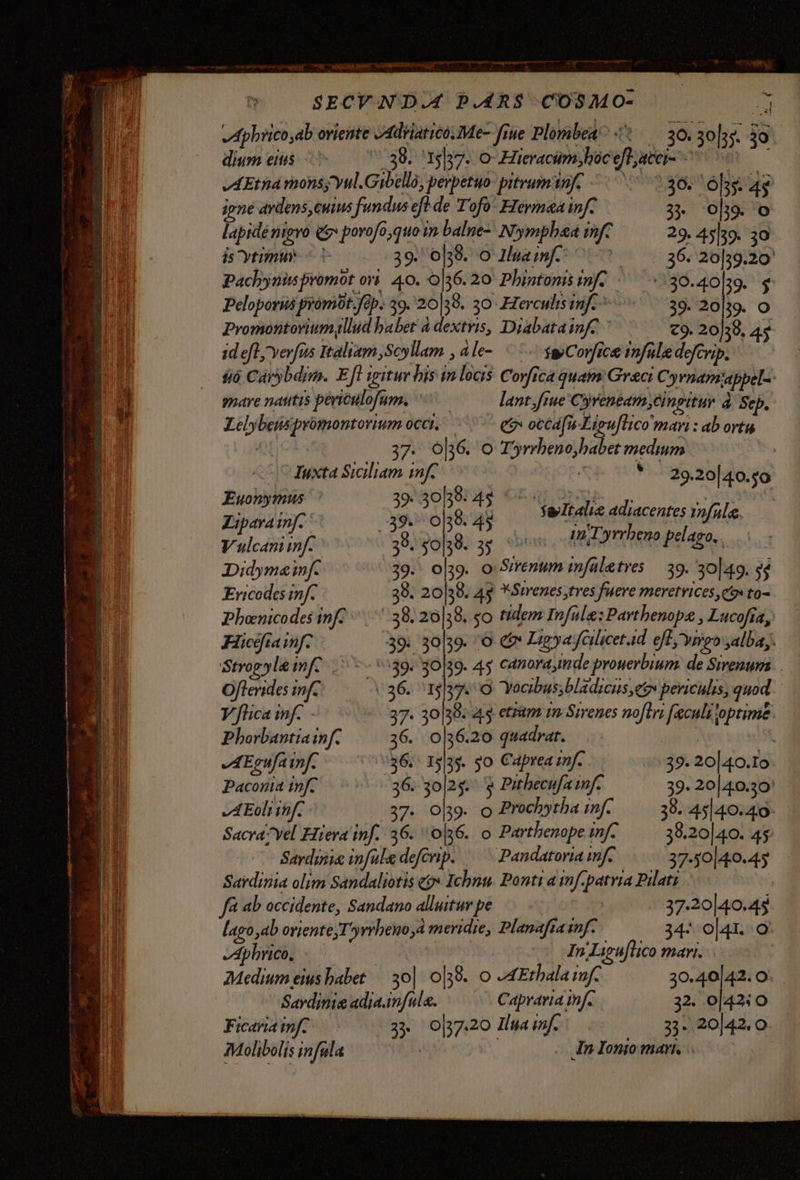 SECVNDA PARS COSMO-
Aphrico,ab oriente Adriatico. Me-
dium eius 38. 15|37. 0
AEtna mons, vul.Gibello, perpetuo
igne ardens,cuius fundus est de Tofo
lapide nigro & poroso,quo in balne-
is vtimur 39. 0|38. 0
Pachynus promot ori 40. 0|36.20
Peloporus promot.sep. 39. 20|38. 30
Promontorium illud habet à dextris,
id est, versus Italiam,Scyllam , à le-
uo Carybdim. Est igitur his in locis
mare nautis periculosum.
Lelybeus promontorium occi.
37. 0|36. 0
Iuxta Siciliam inf.
Euonymus 39. 30|38. 45
Lipara inf. 39. 0|38. 45
Vulcani inf. 38. 50|38. 35
Didyma inf. 39. 0|39. 0
Ericodes inf. 38. 20|38. 45
Phœnicodes inf. 38. 20|38. 50
Hicesia inf. 39. 30|39. 0
Strogyla inf. 39. 30|39. 45
Osterides inf. 36. 15|37. 0
Vstica inf. 37. 30|38. 45
Phorbantia inf. 36. 0|36.20
AEgusa inf. 36. 15|35. 50
Paconia inf. 36. 30|25. 5
AEoli inf. 37. 0|39. 0
Sacra vel Hiera inf. 36. 0|36. 0
Sardinia insula descrip.
Sardinia olim Sandaliotis & Ichnu
sa ab occidente, Sandano alluitur pe
lago,ab oriente,Tyrrheno,à meridie,
Aphrico.
Medium eius habet 30| 0|38. 0
Sardinia adia.insula.
Ficaria inf. 33. 0|37.20
Molibolis insula
siue Plombea 30. 30|35. 30
Hieracum,hoc est,acci-
pitrum inf. 30. 0|35. 45
Hermea inf. 33. 0|39. 0
Nymphea inf. 29. 45|39. 30
Ilua inf. 36. 20|39.20
Phintonis inf. 30.40|39. 5
Herculis inf. 39. 20|39. 0
Diabata inf. 29. 20|38. 45
Corsica insula descrip.
Corsica quam Græci Cyrnam appel-
lant,siue Cyreneam,cingitur à Sep.
& occasu Ligustico mari : ab ortu
Tyrrheno,habet medium
29.20|40.50
Italia adiacentes insula.
in Tyrrheno pelago.
Sirenum insulæ tres 39. 30|49. 55
*Sirenes,tres fuere meretrices,& to-
tidem Insula: Parthenope , Lucosia,
& Ligya scilicet.id est, virgo alba,
canora,inde prouerbium de Sirenum
vocibus,bladiciis,& periculis, quod
etiam in Sirenes nostri seculi optime
quadrat.
Caprea inf. 39. 20|40.10
Pithecusa inf. 39. 20|40.30
Prochytha inf. 38. 45|40.40
Parthenope inf. 38.20|40. 45
Pandatoria inf. 37.50|40.45
Pontia inf.patria Pilati
37.20|40.45
Planasia inf. 34. 0|41. 0
In Ligustico mari.
AEthala inf. 30.40|42. 0
Capraria inf. 32. 0|42. 0
Ilua inf. 33. 20|42. 0
In Ionio mari.